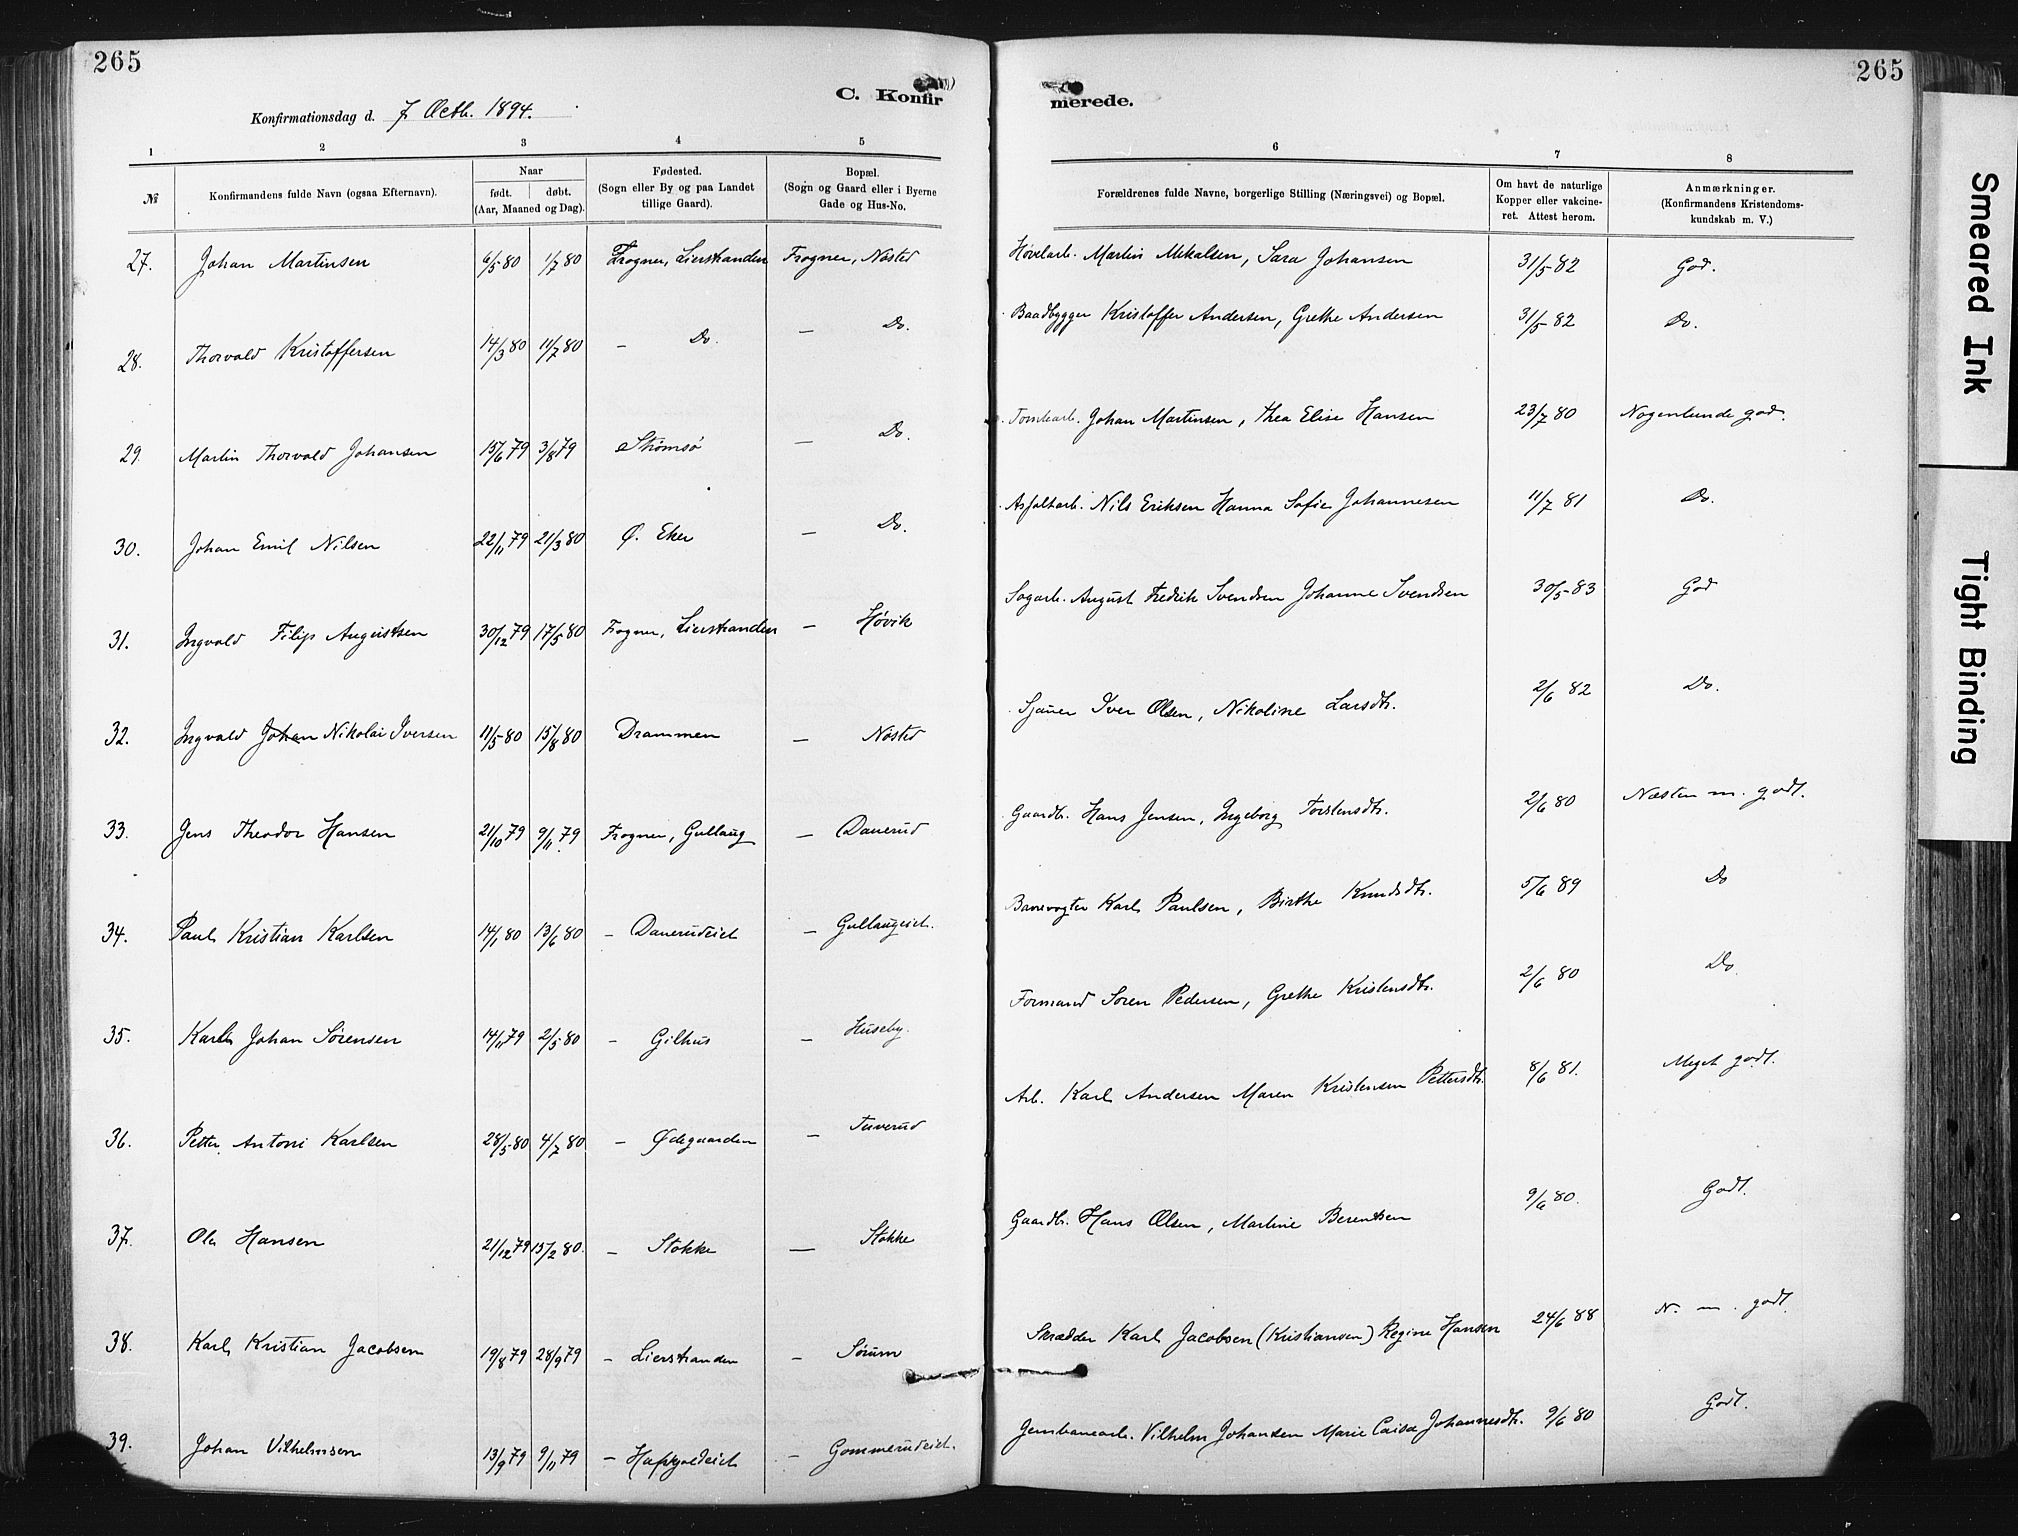 265
265
C. Konfir merede.
Konfirmationsdag d. 7 Octb. 1894.
1 2 3 4 5 6 7 8
№ Konfirmandens fulde Navn (ogsaa Efternavn). Naar født. døbt. (Aar, Maaned og Dag). Fødested. (Sogn eller By og paa Landet tillige Gaard). Bopæl. (Sogn og Gaard eller i Byerne Gade og Hus-No. Forældrenes fulde Navne, borgerlige Stilling (Næringsvei) og Bopæl. Om havt de naturlige Kopper eller vakcineret. Attest herom. Anmærkninger. (Konfirmandens Kristendomskundskab m. V.)
27. Johan Martinsen 6/5 80 1/7 80 Frogner, Lierstranden Frogner, Nøsted Høvelarb. Martin Mikalsen, Sara Johansen 31/5 82 God.
28. Thorvald Kristoffersen 14/3 80 11/7 80 – Do. – Do. Baadbygger Kristoffer Andersen, Grethe Andersen 31/5 82 Do.
29. Martin Thorvald Johansen 15/6 79 3/8 79 Strømsø – Do. Tomtearb. Johan Martinsen, Thea Elise Hansen 23/7 80 Nogenlunde god.
30. Johan Emil Nilsen 22/11 79 21/3 80 Ø. Eker – Do. Asfaltarb. Nils Eriksen Hanna Sofie Johannesen 11/7 81 Do.
31. Ingvald Filip Augustsen 30/12 79 17/5 80 Frogner, Lierstranden – Høvik Sagarb. August Fredrik Svendsen Johanne Svendsen 30/5 83 God
32. Ingvald Johan Nikolai Iversen 11/5 80 15/8 80 Drammen – Nøsted Sjauer Iver Olsen, Nikoline Larsdtr. 2/6 82 Do.
33. Jens Theodor Hansen 21/10 79 9/11 79 Frogner, Gullaug – Danerud Gaardbr. Hans Jensen, Ingeborg Torstensdtr. 2/6 80 Næsten m. godt.
34. Paul Kristian Karlsen 14/1 80 13/6 80 – Danerudeiet – Gullaugeiet. Banevogter Karl Paulsen, Birthe Knudsdtr. 5/6 89 Do
35. Karl Johan Sørensen 14/11 79 2/5 80 – Gilhus – Huseby. Formand Søren Pedersen, Grethe Kristensdtr. 2/6 80 Do
36. Petter Antoni Karlsen 28/5 80 4/7 80 – Ødegaarden – Tuverud Arb. Karl Andersen Maren Kristensen Pettersdtr. 8/6 81. Meget godt.
37. Ole Hansen 21/12 79 15/2 80. – Stokke – Stokke Gaardbr. Hans Olsen, Martine Berentsen 9/6 80. Godt.
38. Karl Kristian Jacobsen 19/8 79 28/9 79 – Lierstranden – Sørum Skrædder Karl Jacobsen (Kristiansen) Regine Hansen 24/6 88 N. m. godt.
39. Johan Vilhelmsen 13/9 79 9/11 79 – – Gommerudeiet. Jernbanearb. Vilhelm Johansen Marie Caisa Johannesdtr. 9/6 80 Godt.
Smeared Ink
Tight Binding